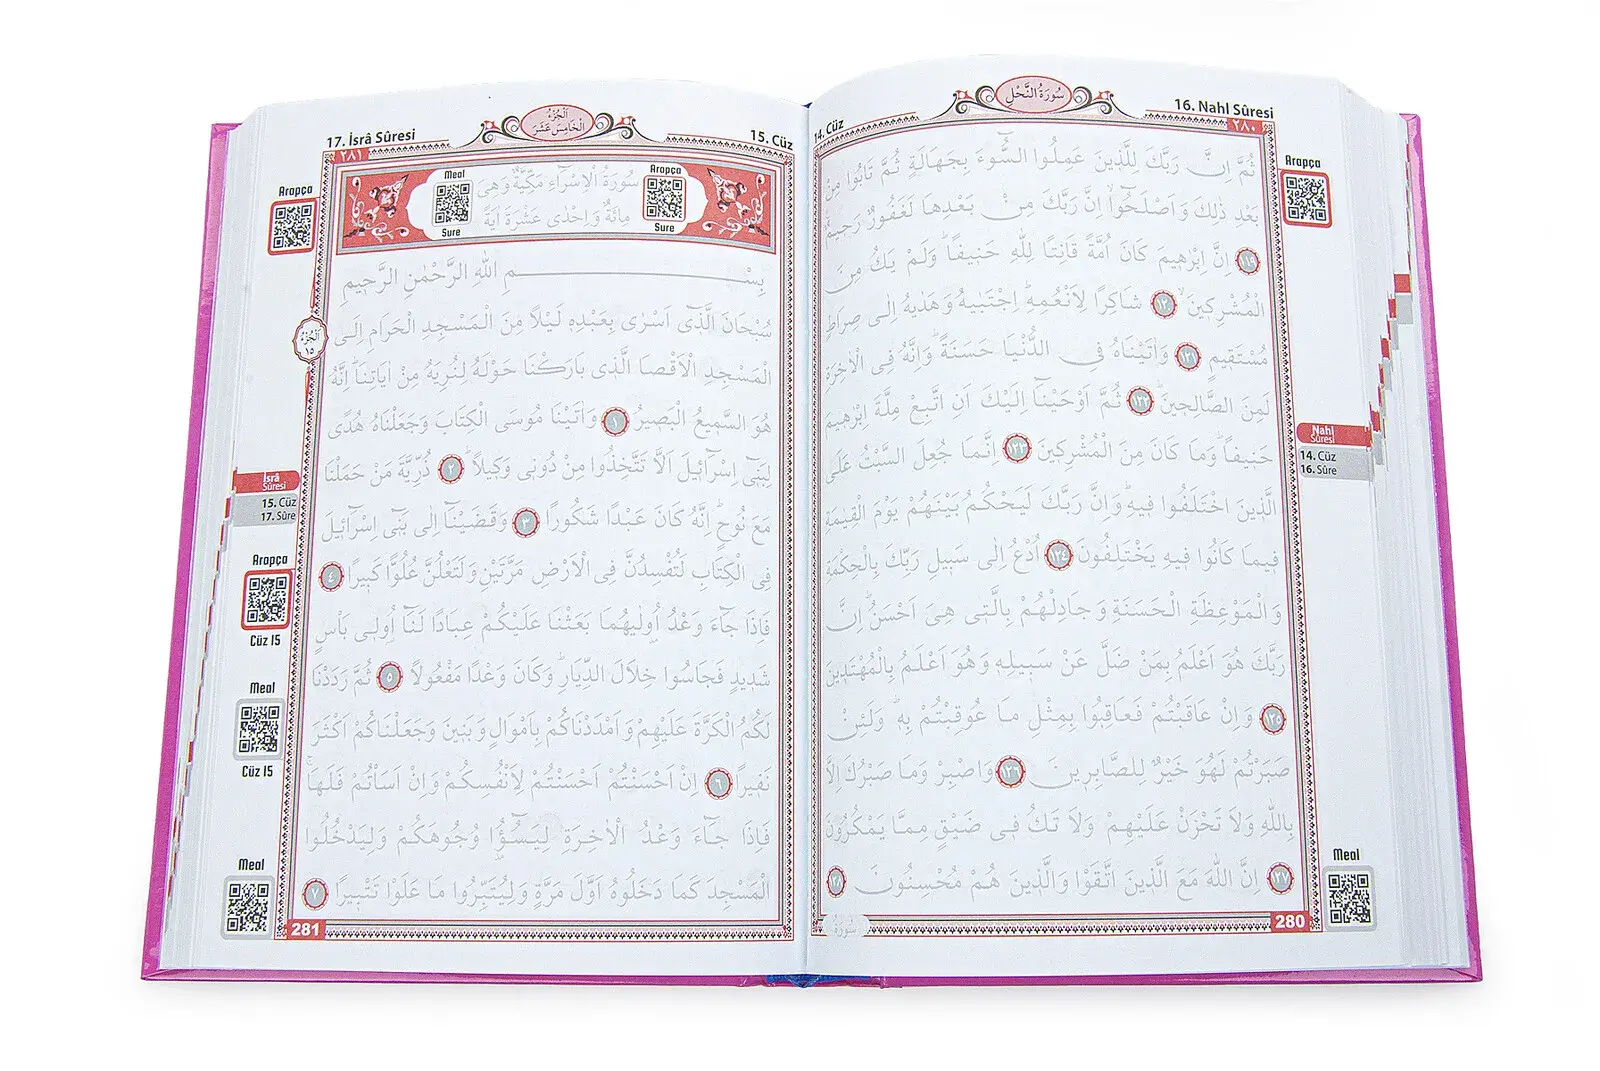 16. Nahl Sûresi
سُورَةُ النَّحْلِ
14. Cüz
٢٨٠
ثُمَّ اِنَّ رَبَّكَ لِلَّذِينَ عَمِلُوا السُّٓوءَ بِجَهَالَةٍ ثُمَّ تَابُوا مِنْ
بَعْدِ ذٰلِكَ وَاَصْلَحُٓوا اِنَّ رَبَّكَ مِنْ بَعْدِهَا لَغَفُورٌ رَحِيمٌ
١١٩ اِنَّ اِبْرٰهِيمَ كَانَ اُمَّةً قَانِتًا لِلّٰهِ حَنِيفًاۜ وَلَمْ يَكُ مِنَ
الْمُشْرِكِينَۙ ١٢٠ شَاكِرًا لِاَنْعُمِهِۜ اِجْتَبٰيهُ وَهَدٰيهُ اِلٰى صِرَاطٍ
مُسْتَقِيمٍ ١٢١ وَاٰتَيْنَاهُ فِي الدُّنْيَا حَسَنَةًۜ وَاِنَّهُ فِي الْاٰخِرَةِ
لَمِنَ الصَّالِحِينَۜ ١٢٢ ثُمَّ اَوْحَيْنَٓا اِلَيْكَ اَنِ اتَّبِعْ مِلَّةَ اِبْرٰهِيمَ
حَنِيفًاۜ وَمَا كَانَ مِنَ الْمُشْرِكِينَ ١٢٣ اِنَّمَا جُعِلَ السَّبْتُ عَلَى
الَّذِينَ اخْتَلَفُوا فِيهِۜ وَاِنَّ رَبَّكَ لَيَحْكُمُ بَيْنَهُمْ يَوْمَ الْقِيٰمَةِ
فِيمَا كَانُوا فِيهِ يَخْتَلِفُونَ ١٢٤ اُدْعُ اِلٰى سَبِيلِ رَبِّكَ بِالْحِكْمَةِ
وَالْمَوْعِظَةِ الْحَسَنَةِ وَجَادِلْهُمْ بِالَّتِي هِيَ اَحْسَنُۜ اِنَّ
رَبَّكَ هُوَ اَعْلَمُ بِمَنْ ضَلَّ عَنْ سَبِيلِهِ وَهُوَ اَعْلَمُ بِالْمُهْتَدِينَ
١٢٥ وَاِنْ عَاقَبْتُمْ فَعَاقِبُوا بِمِثْلِ مَا عُوقِبْتُمْ بِهِۜ وَلَئِنْ
صَبَرْتُمْ لَهُوَ خَيْرٌ لِلصَّابِرِينَ ١٢٦ وَاصْبِرْ وَمَا صَبْرُكَ اِلَّا
بِاللّٰهِ وَلَا تَحْزَنْ عَلَيْهِمْ وَلَا تَكُ فِي ضَيْقٍ مِمَّا يَمْكُرُونَ
١٢٧ اِنَّ اللّٰهَ مَعَ الَّذِينَ اتَّقَوْا وَالَّذِينَ هُمْ مُحْسِنُونَ ١٢٨
280
Arapça
Nahl
Sûresi
14. Cüz
16. Sûre
Meal
17. İsrâ Sûresi
اَلْجُزْءُ
الْخَامِسَ عَشَرَ
15. Cüz
٢٨١
Arapça
Sure
سُورَةُ الْاِسْرَٓاءِ مَكِّيَّةٌ وَهِيَ
مِائَةٌ وَاِحْدٰى عَشْرَةَ اٰيَةً
Meal
Sure
بِسْمِ اللّٰهِ الرَّحْمٰنِ الرَّحِيمِ
سُبْحَانَ الَّذِٓي اَسْرٰى بِعَبْدِهِ لَيْلًا مِنَ الْمَسْجِدِ الْحَرَامِ اِلَى
الْمَسْجِدِ الْاَقْصَا الَّذِي بَارَكْنَا حَوْلَهُ لِنُرِيَهُ مِنْ اٰيَاتِنَاۜ اِنَّهُ
هُوَ السَّمِيعُ الْبَصِيرُ ١ وَاٰتَيْنَا مُوسَى الْكِتَابَ وَجَعَلْنَاهُ هُدًى
لِبَنِٓي اِسْرَٓائِلَ اَلَّا تَتَّخِذُوا مِنْ دُونِي وَكِيلًاۜ ٢ ذُرِّيَّةَ مَنْ حَمَلْنَا
مَعَ نُوحٍۜ اِنَّهُ كَانَ عَبْدًا شَكُورًا ٣ وَقَضَيْنَٓا اِلٰى بَنِٓي اِسْرَٓائِلَ
فِي الْكِتَابِ لَتُفْسِدُنَّ فِي الْاَرْضِ مَرَّتَيْنِ وَلَتَعْلُنَّ عُلُوًّا كَبِيرًا ٤
فَاِذَا جَٓاءَ وَعْدُ اُو۫لٰيهُمَا بَعَثْنَا عَلَيْكُمْ عِبَادًا لَنَٓا اُو۬لِي بَأْسٍ
شَدِيدٍ فَجَاسُوا خِلَالَ الدِّيَارِۜ وَكَانَ وَعْدًا مَفْعُولًا ٥ ثُمَّ رَدَدْنَا
لَكُمُ الْكَرَّةَ عَلَيْهِمْ وَاَمْدَدْنَاكُمْ بِاَمْوَالٍ وَبَنِينَ وَجَعَلْنَاكُمْ اَكْثَرَ
نَفِيرًا ٦ اِنْ اَحْسَنْتُمْ اَحْسَنْتُمْ لِاَنْفُسِكُمْ وَاِنْ اَسَأْتُمْ فَلَهَاۜ
فَاِذَا جَٓاءَ وَعْدُ الْاٰخِرَةِ لِيَسُٓؤُ۫ا وُجُوهَكُمْ وَلِيَدْخُلُوا
الْمَسْجِدَ كَمَا دَخَلُوهُ اَوَّلَ مَرَّةٍ وَلِيُتَبِّرُوا مَا عَلَوْا تَتْبِيرًا ٧
281
Arapça
اَلْجُزْءُ
١٥
İsrâ
Sûresi
15. Cüz
17. Sûre
Arapça
Cüz 15
Meal
Cüz 15
Meal